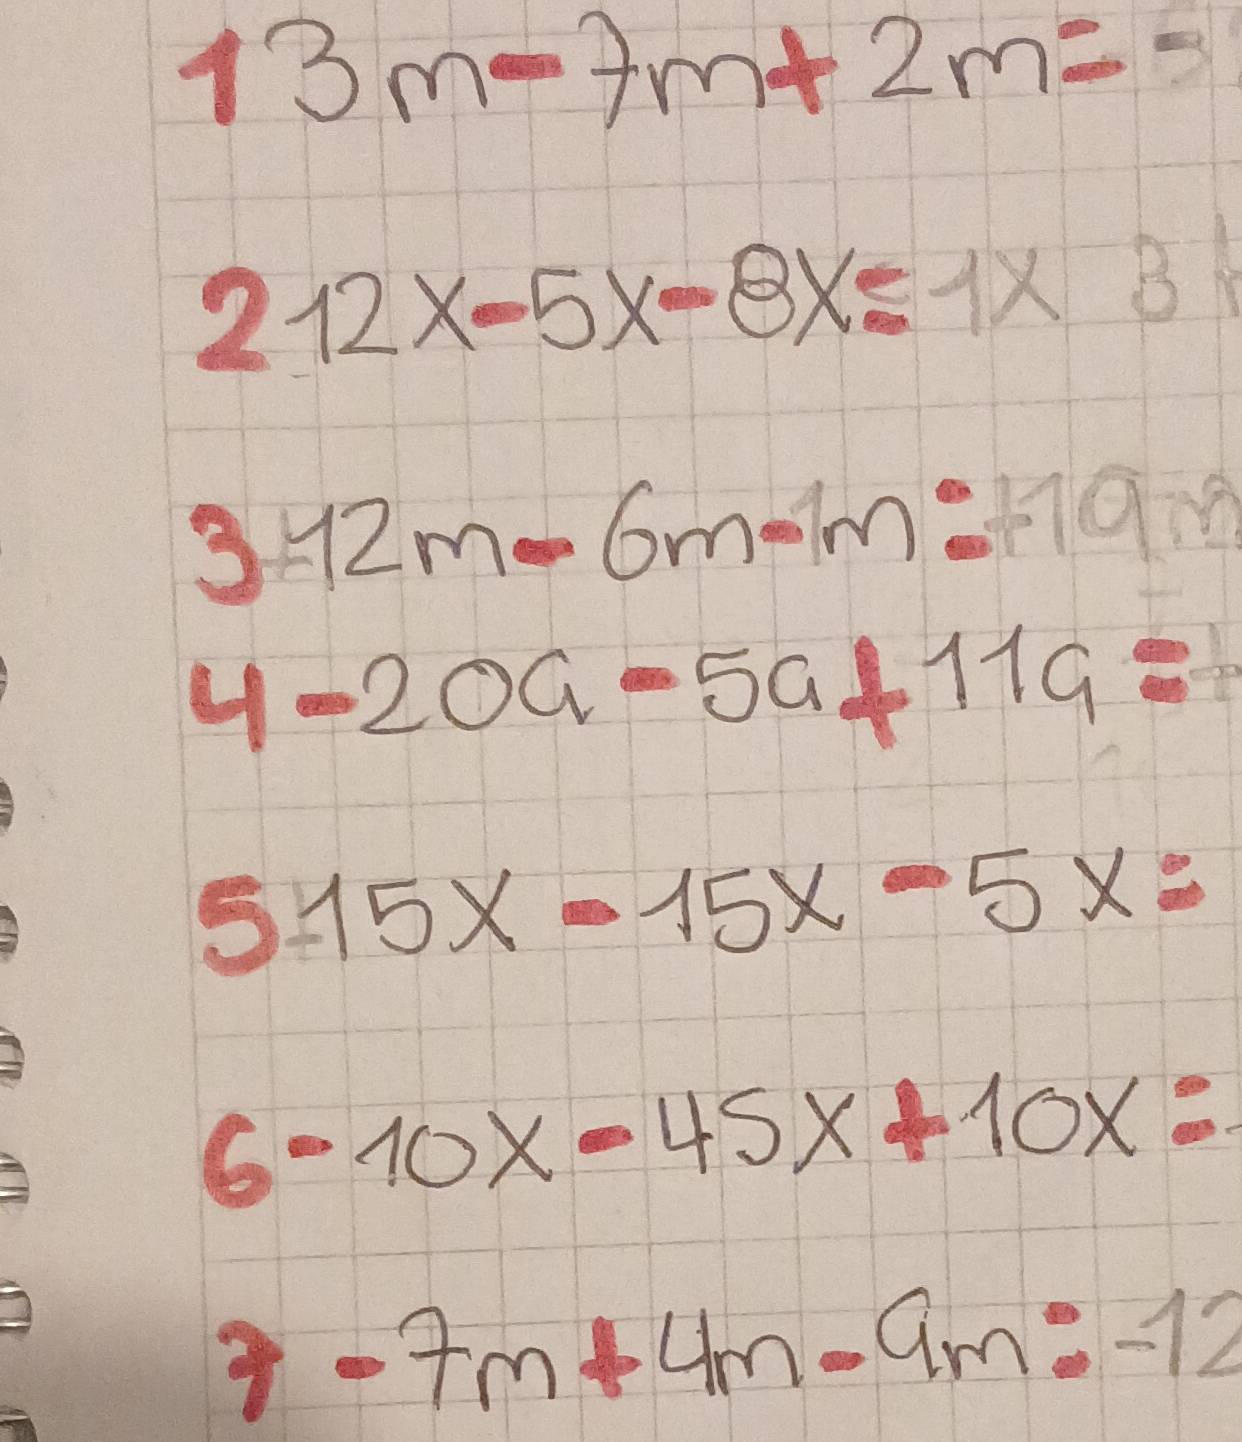 1 3m - 7m + 2m = -
2 12x - 5x - 8x = 1x 3
3 +12m - 6m - 1m = +19m
4 - 20a - 5a + 11a = +
5 +15x - 15x - 5x =
6 - 10x - 45x + 10x = -
7 - 7m + 4m - 9m = -12